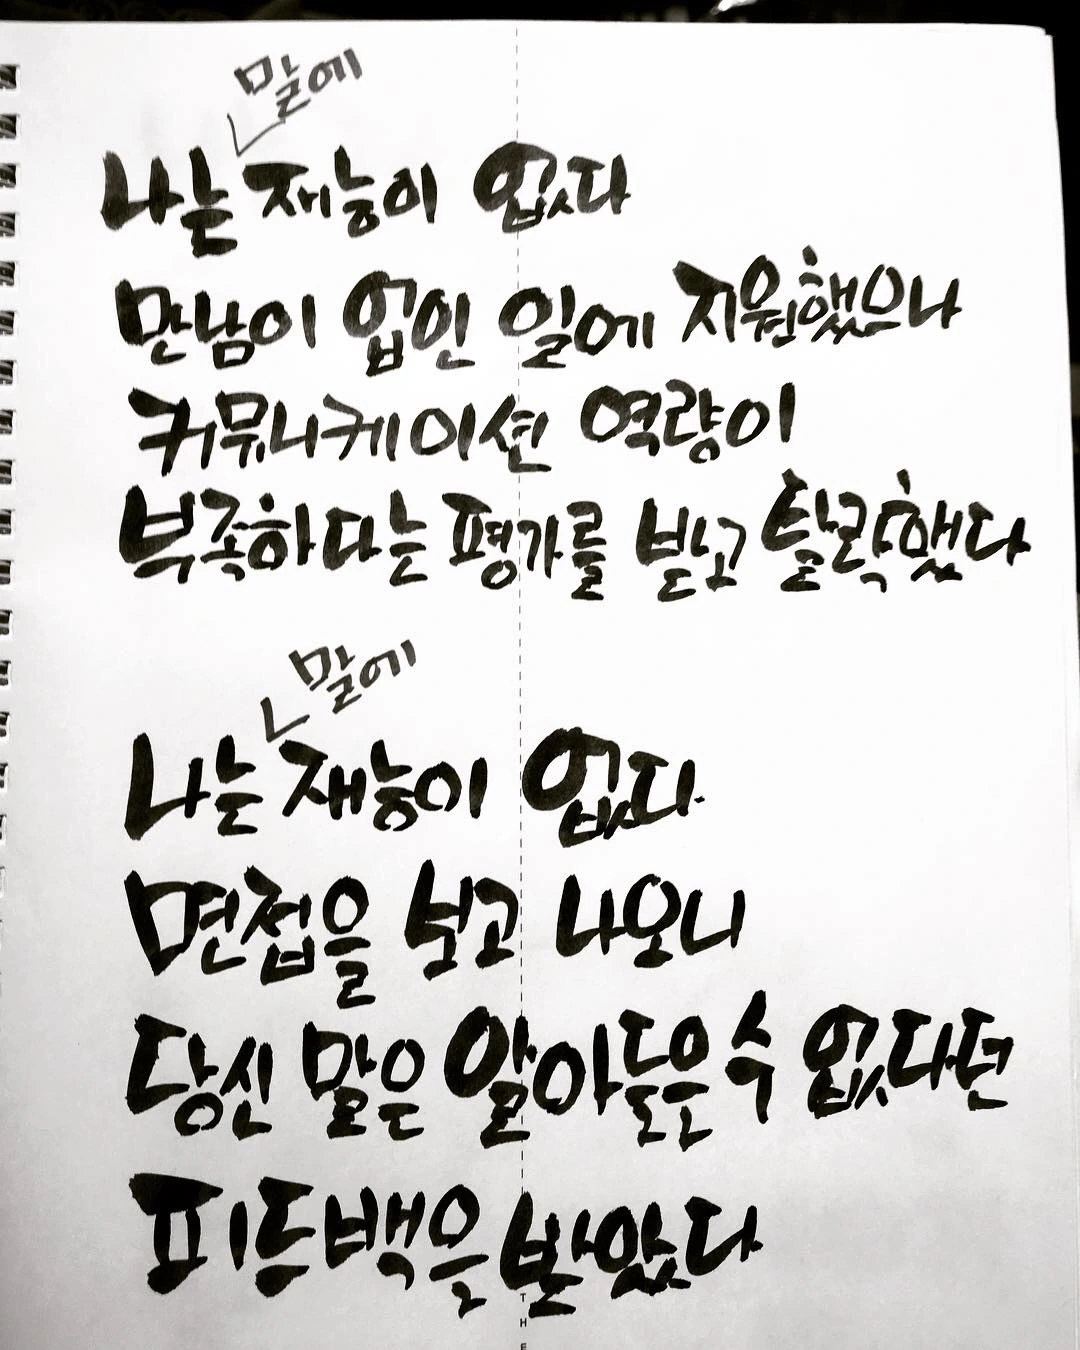 말에
나는 재능이 없다
만남이 업인 일에 지원했으나
커뮤니케이션 역량이
부족하다는 평가를 받고 탈락했다
말에
나는 재능이 없다.
면접을 보고 나오니
당신 말은 알아들은 수 없다던
피드백을 받았다
T
H
E